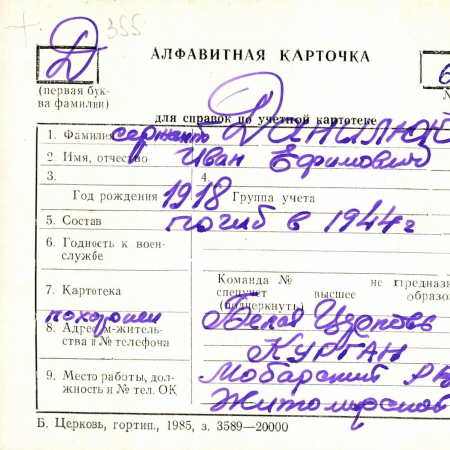 355
Д
АЛФАВИТНАЯ КАРТОЧКА
6
(первая бук-
ва фамилии)
для справок по учетной картотеке
1. Фамилия сержант Данилюк
2. Имя, отчество Иван Ефимович
3.
4.
Год рождения 1918 Группа учета
5. Состав погиб в 1944 г
6. Годность к воен-
службе
7. Картотека
Команда №
не предназ
спецучет высшее образо
(подчеркнуть)
похоронен
8. Адрес м-житель-
ства и № телефона
Белая
КУРГАН
9. Место работы, дол-
жность и № тел. ОК
Житомирской
Б. Церковь, гортип., 1985, з. 3589—20000